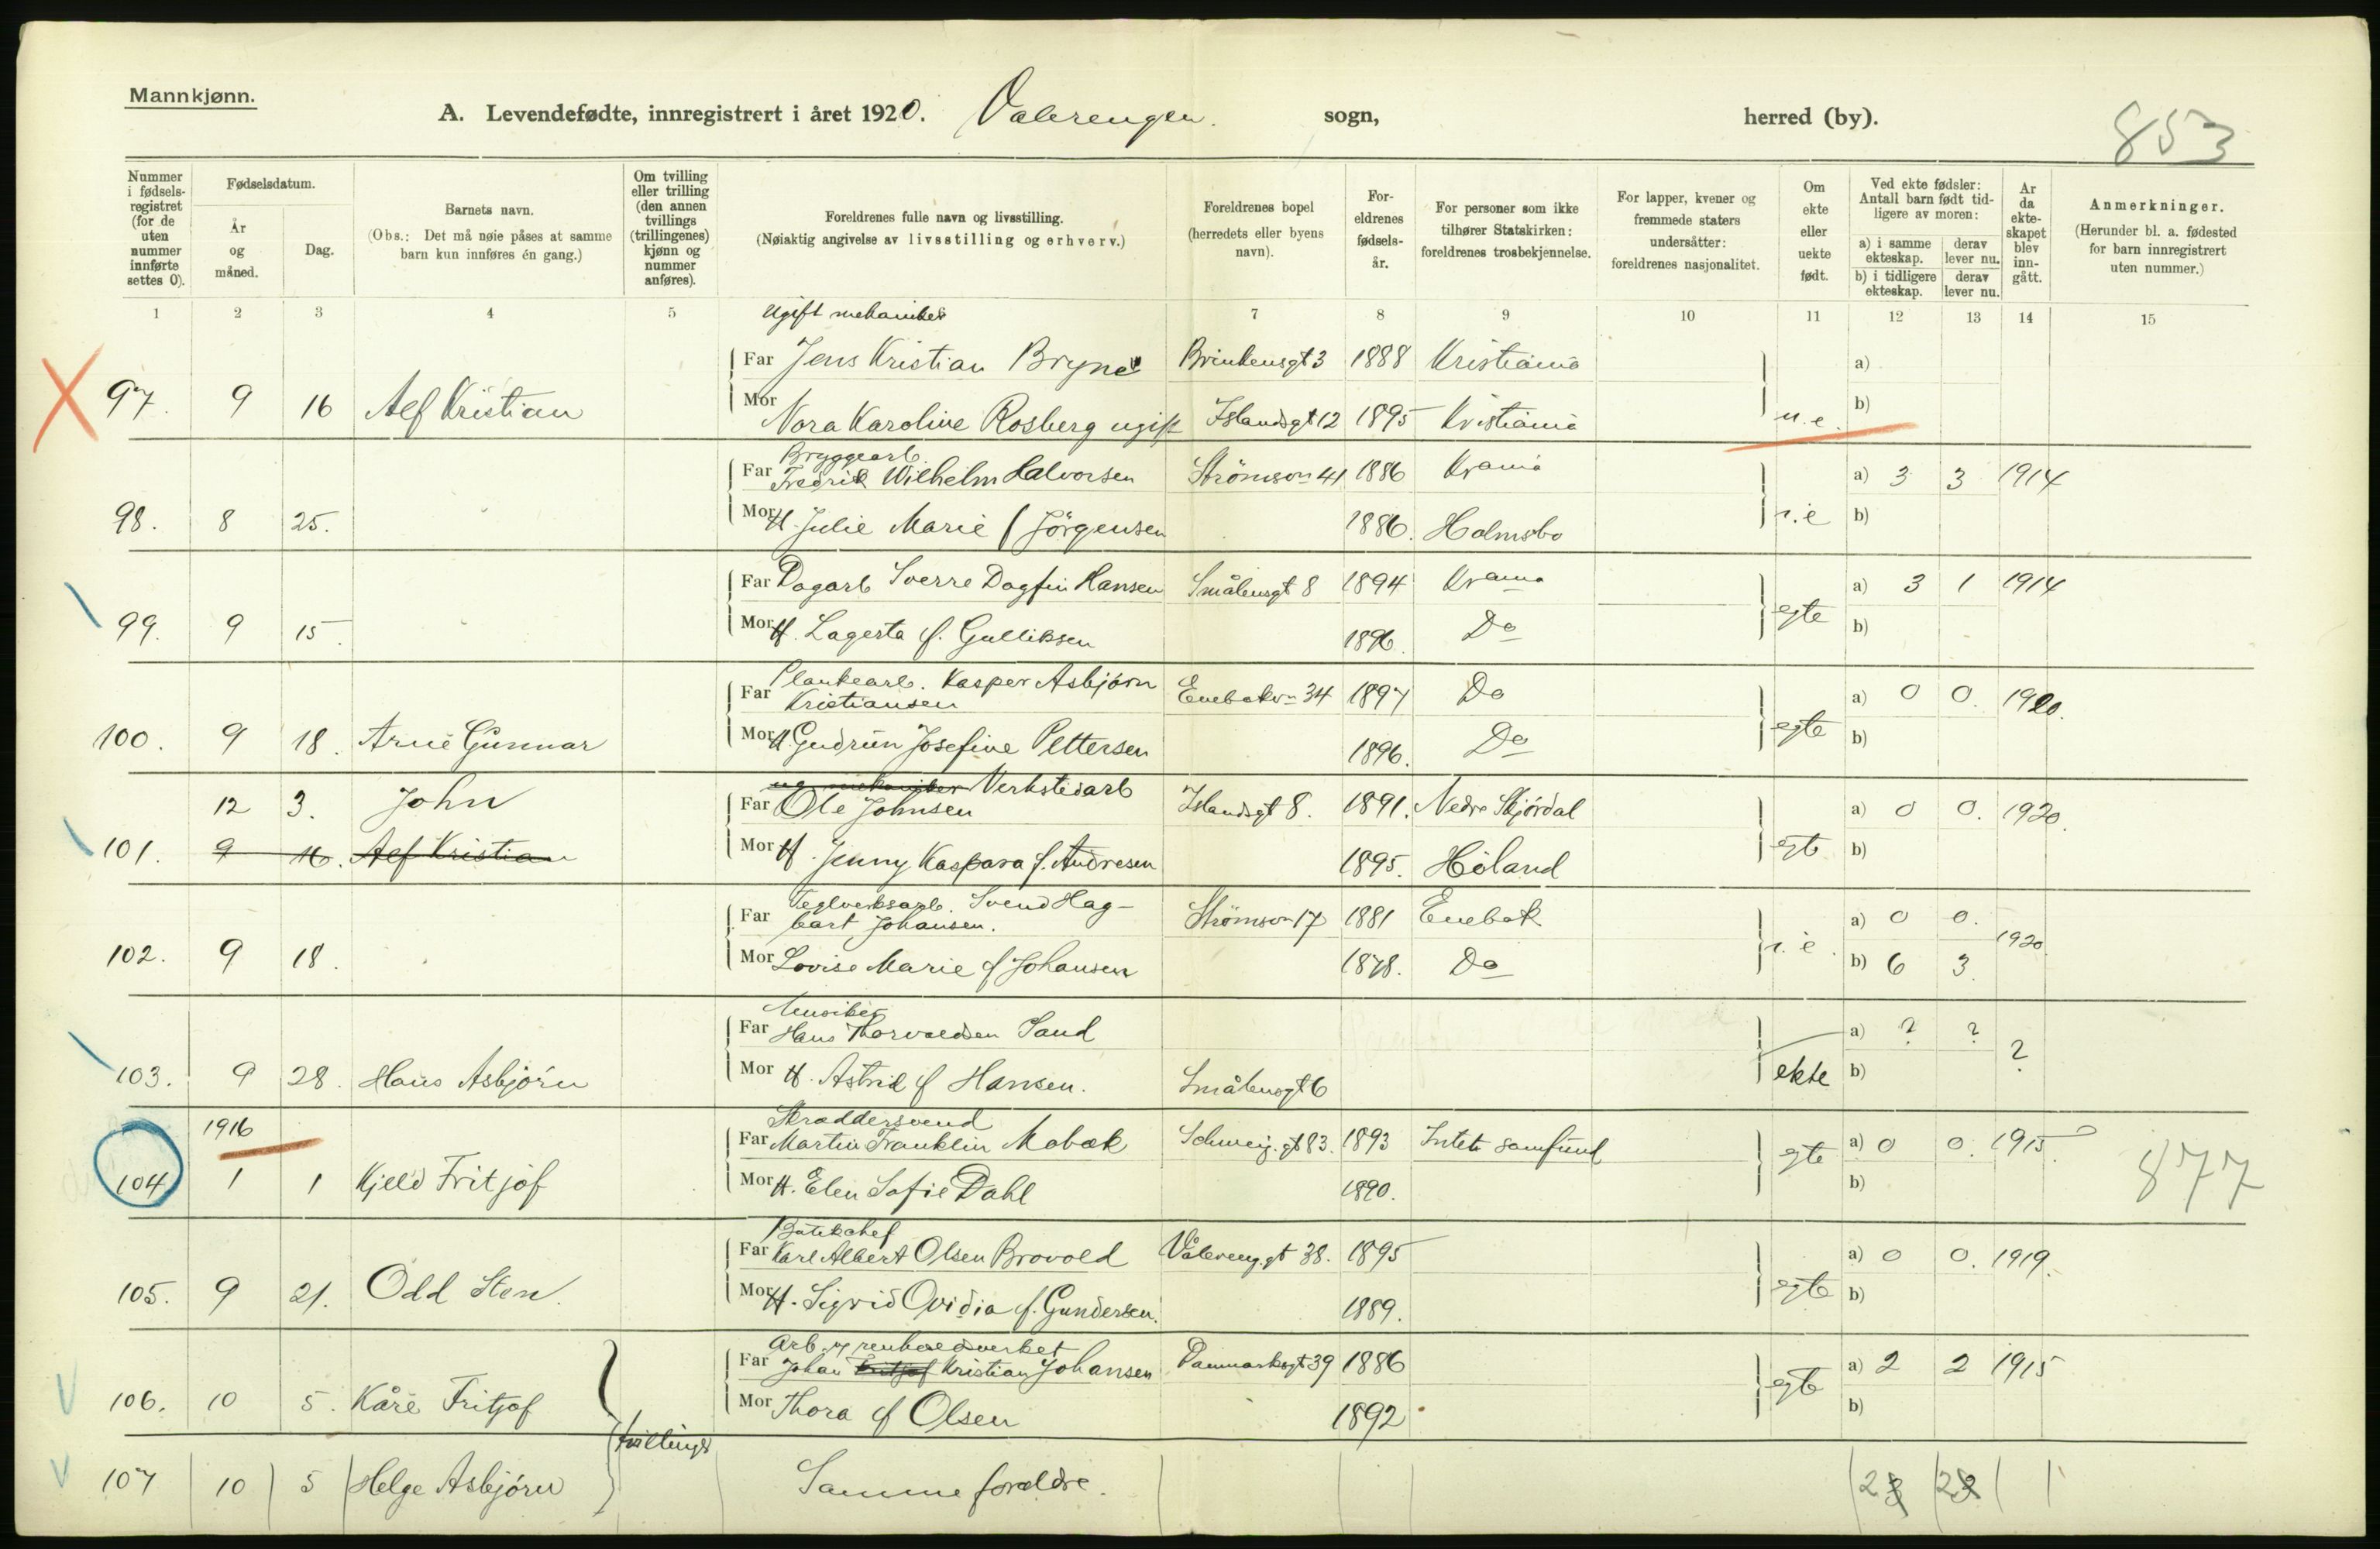 Mannkjønn.
A. Levendefødte, innregistrert i året 1920. Valerengen. sogn, herred (by). 853
Nummer i fødsels-registret (for de uten nummer innførte settes O).
Fødselsdatum.
År og måned.
Dag.
Barnets navn.
(Obs.: Det må nøie påses at samme barn kun innføres én gang.)
Om tvilling eller trilling (den annen tvillings (trillingenes) kjønn og nummer anføres).
Foreldrenes fulle navn og livsstilling.
(Nøiaktig angivelse av livsstilling og erhverv.)
Foreldrenes bopel (herredets eller byens navn).
For-eldrenes fødsels-år.
For personer som ikke tilhører Statskirken: foreldrenes trosbekjennelse.
For lapper, kvener og fremmede staters undersåtter: foreldrenes nasjonalitet.
Om ekte eller uekte født.
Ved ekte fødsler: Antall barn født tid-ligere av moren:
a) i samme ekteskap. derav lever nu.
b) i tidligere ekteskap. derav lever nu.
År da ekte-skapet blev inn-gått.
Anmerkninger.
(Herunder bl. a. fødested for barn innregistrert uten nummer.)
1 2 3 4 5 7 8 9 10 11 12 13 14 15
Ugift mekaniker
Far Jens Kristian Bryne Brinkensgt 3 1888 Kristiania a)
97. 9 16 Alf Kristian
Mor Nora Karoline Rosberg ugift Islandsgt 12 1895 Kristiania u.e. b)
Bryggearb.
Far Fredrik Wilhelm Halvorsen Strömsv 41 1886 Krania a) 3 3 1914
98. 8 25. Mor H. Julie Marie f Jörgensen 1886. Holmsbo b)
Far Dagarb Sverre Dagfin Hansen Smålensgt 8 1894 Krania a) 3 1 1914
99. 9 15. Mor H. Lagerta f. Gulliksen 1896. Do egte b)
Plankearb. Kasper Asbjørn
Far Kristiansen Enebakv 34 1897 Do a) 0 0. 1920.
100. 9 18. Arne Gunnar Mor H Gudrun Josefine Pettersen 1896. Do egte b)
ug mekaniker Verkstedarb
12 3. John Far Ole Johnsen Islandsgt 8. 1891. Nedre Stjördal a) 0 0. 1920.
101. 9 16. Alf Kristian Mor H. Jenny Kaspara f. Andresen 1895. Höland egte b)
Teglverksarb. Svend Hag-
Far bart Johansen. Strömsv 17 1881 Enebak a) 0 0. 1920
102. 9 18. Mor Lovise Marie f Johansen 1878. Do b) 6 3
Musiker
Far Hans Thorvaldsen Sand a) ? ? ?
103. 9 28. Hans Asbjörn Mor H. Astrid f Hansen. Smålensgt 6 ekte b)
1916 Skræddersvend
Far Martin Franklin Mobæk Schweig. gt 83. 1893 Intet samfund egte a) 0 0. 1915. 877
104 1 1 Kjeld Fritjof Mor H. Elen Sofie Dahl 1890. b)
Butikchef
Far Karl Albert Olsen Brovold Vålereng.gt 38. 1895 a) 0 0. 1919.
105. 9 21. Odd Sten. Mor H. Sigrid Ovidia f. Gundersen. 1889. egte b)
Arb. v renholdsverket
Far Johan Fritjof Kristian Johansen Danmarksgt 39 1886 a) 2 2 1915
106. 10 5. Kåre Fritjof Mor Thora f Olsen 1892 egte b)
tvillinger
107 10 5 Helge Asbjörn Samme forældre. 2 2